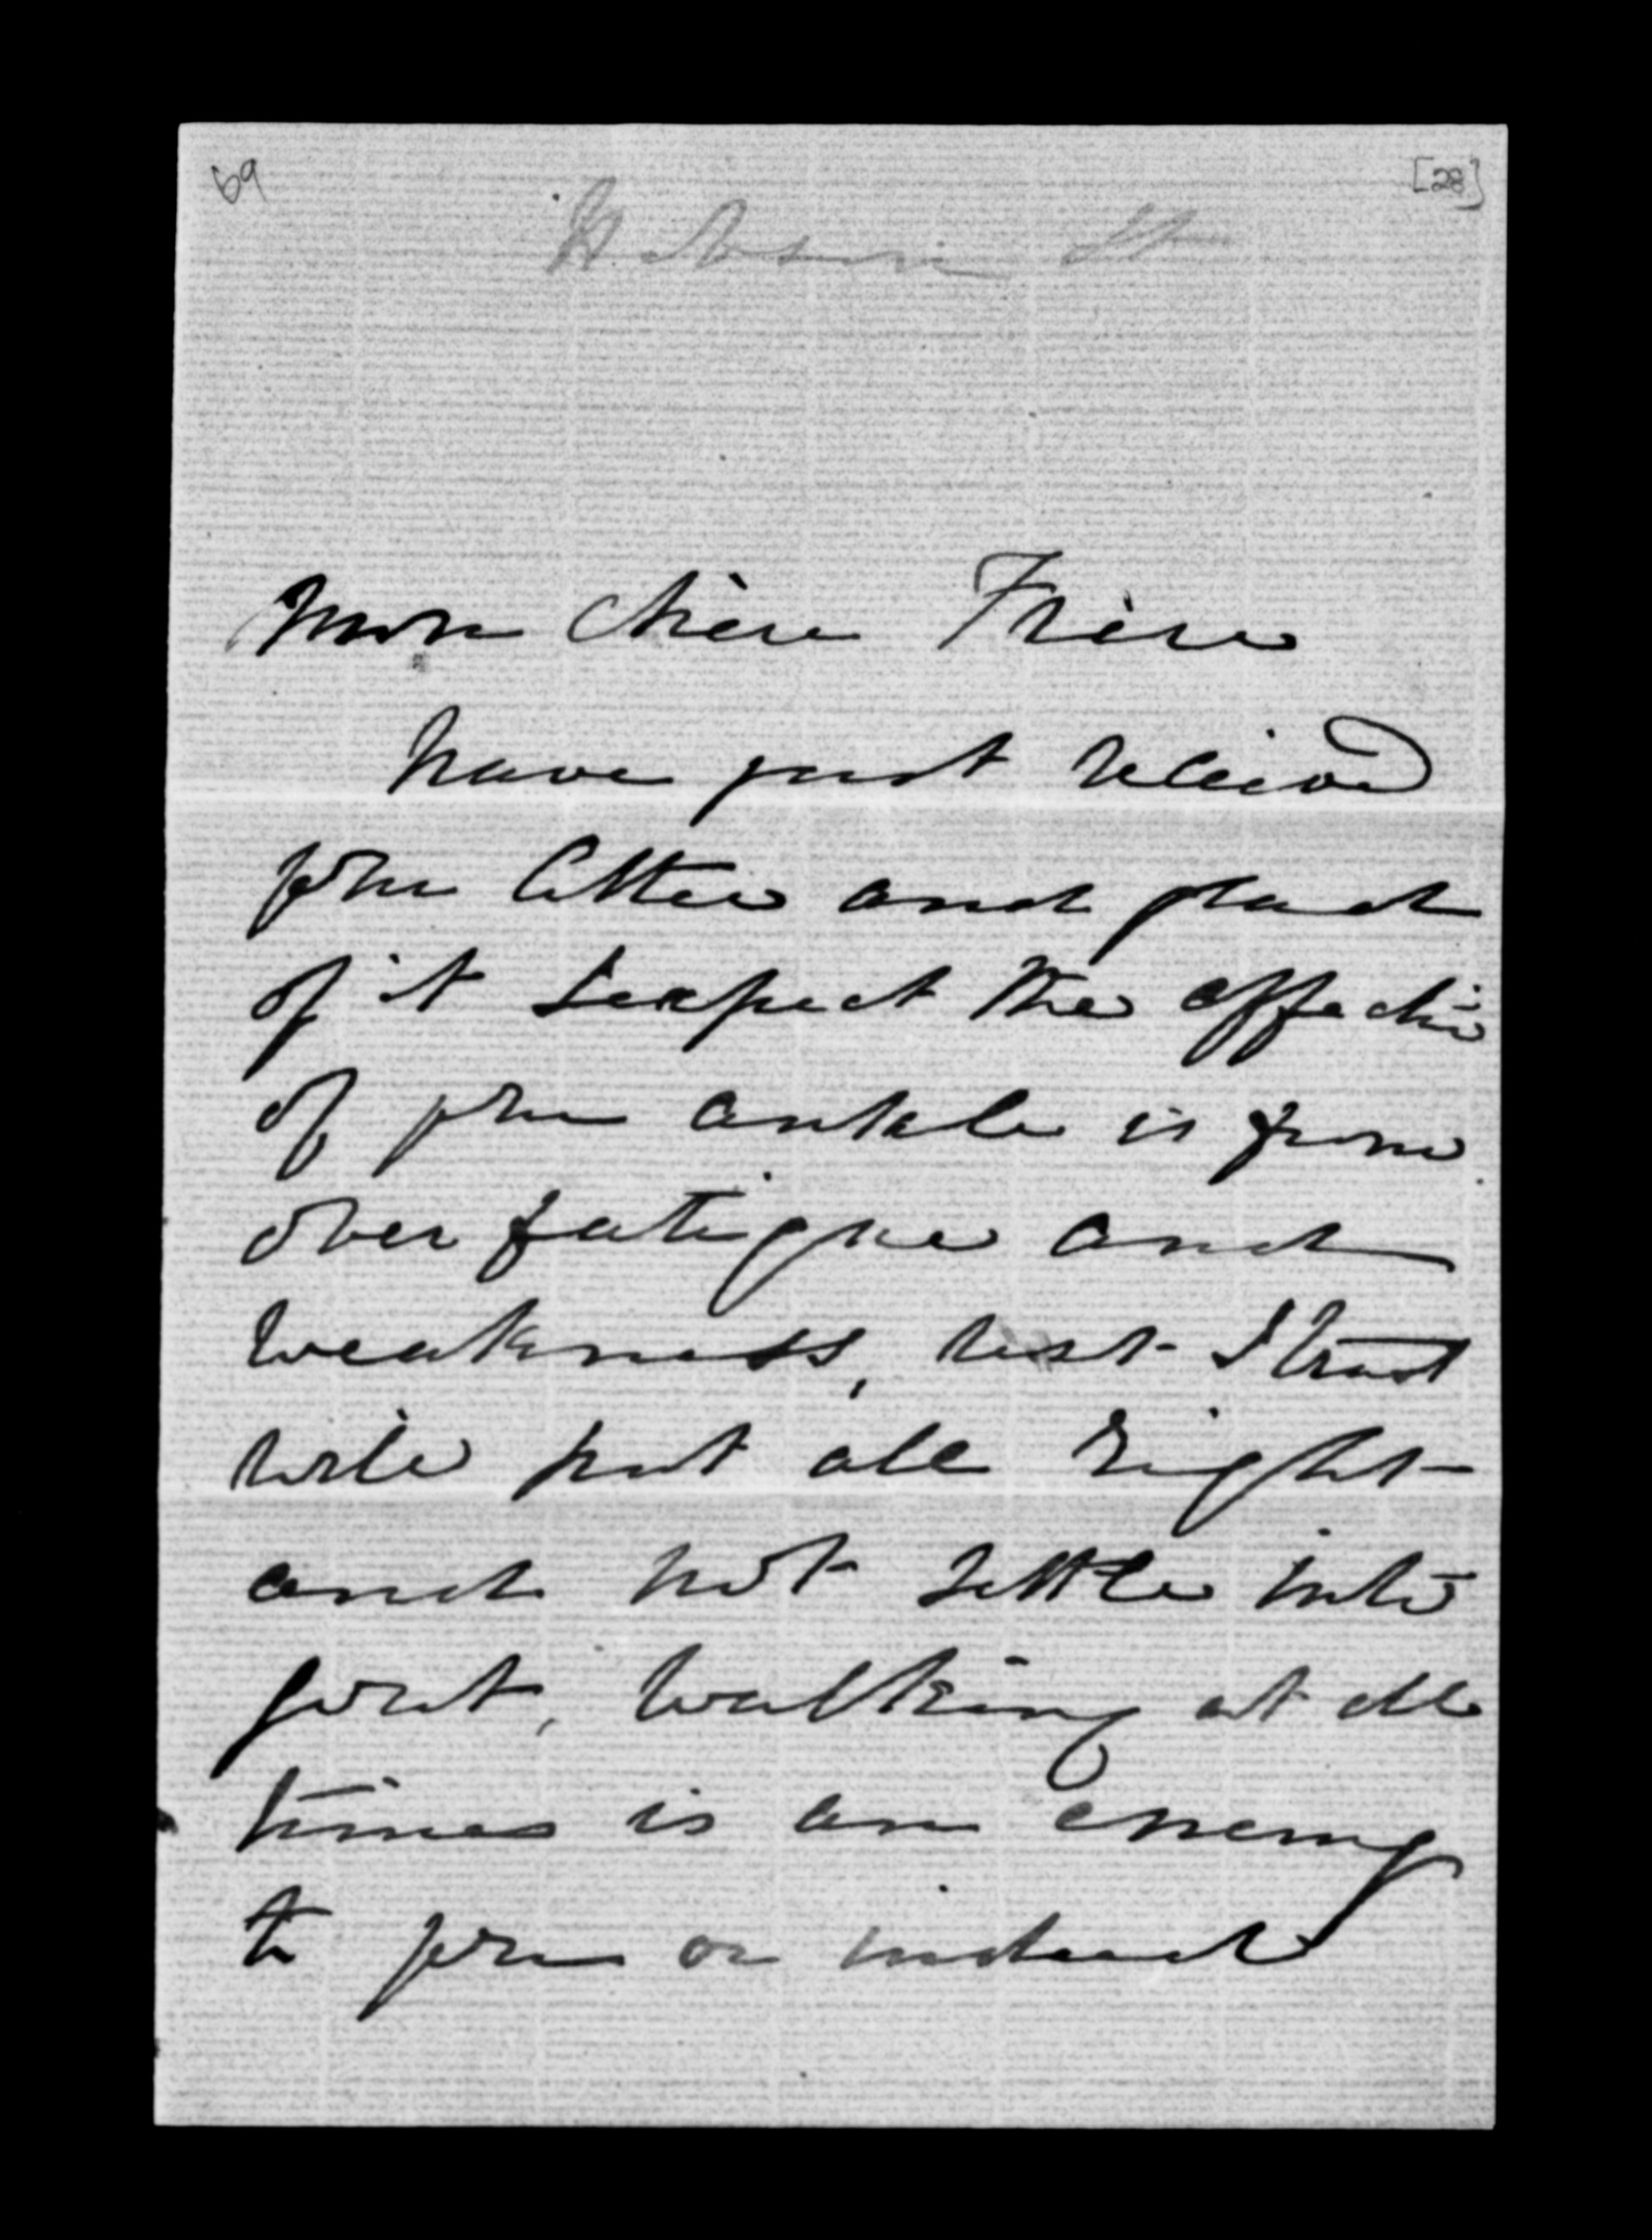 69
[28]
Mon chère Frère
have just recieved
your letter and glad
of it I expect the affectin
of your ankle is from
over fatigue and
weakness, rest I trust
will put all right
and not settle into
gout, walking at all
times is an enemy
to you or instead